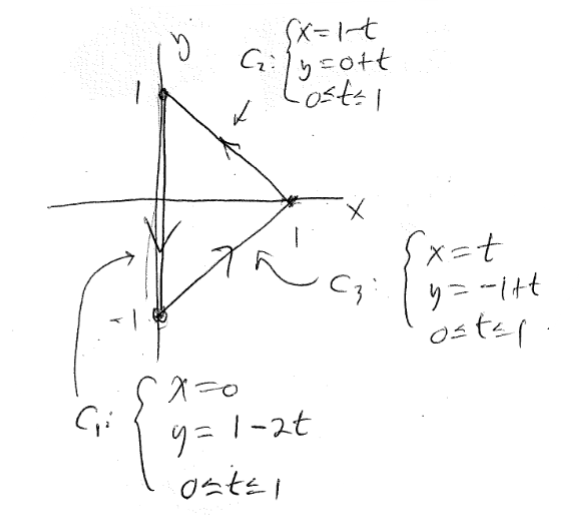 y
C₂: { x = 1-t
y = 0+t
0≤t≤1
1
x
1
C₃: { x = t
y = -1+t
0≤t≤1
-1
C₁: { x = 0
y = 1-2t
0≤t≤1